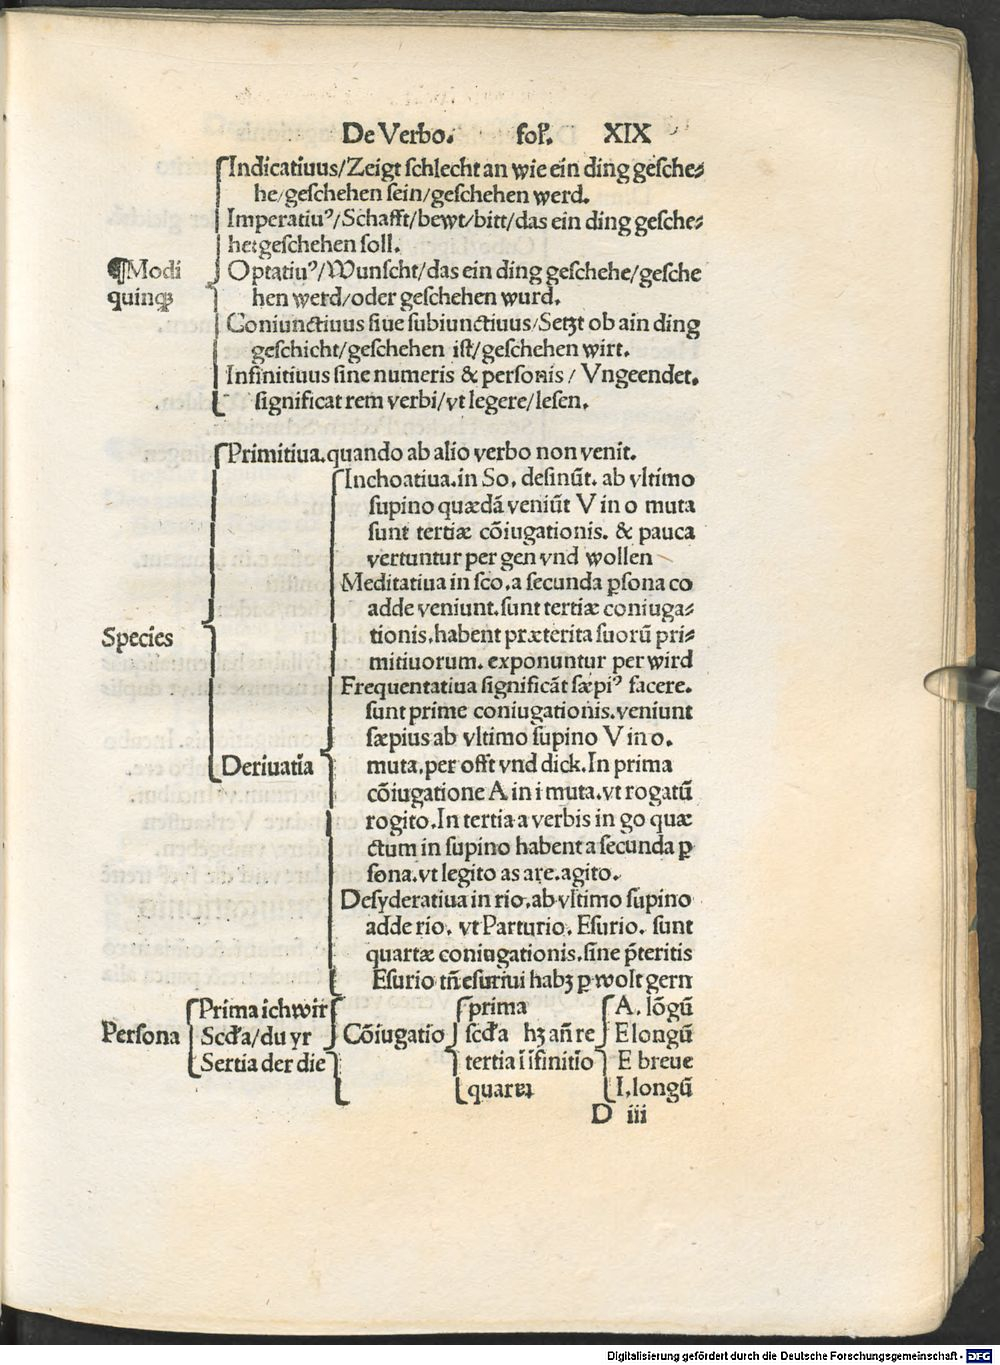 De Verbo. fol. XIX
Indicatiuus/Zeigt schlecht an wie ein ding gesche⸗
he/geschehen sein/geschehen werd.
Imperatiuꝰ/Schafft/bewt/bitt/das ein ding gesche⸗
he:geschehen soll.
¶Modi
quinqꝫ
Optatiuꝰ/Wunscht/das ein ding geschehe/gesche
hen werd/oder geschehen wurd.
Coniunctiuus siue subiunctiuus/Setzt ob ain ding
geschicht/geschehen ist/geschehen wirt.
Infinitiuus sine numeris & personis / Vngeendet.
significat rem verbi/vt legere/lesen.
Primitiua.quando ab alio verbo non venit.
Inchoatiua.in So, desinũt. ab vltimo
supino quædã veniũt V in o muta
sunt tertiæ cõiugationis. & pauca
vertuntur per gen vnd wollen
Meditatiua in sco,a secunda ꝑsona co
adde veniunt.sunt tertiæ coniuga⸗
Species
tionis.habent præterita suorũ pri⸗
mitiuorum. exponuntur per wird
Frequentatiua significãt sæpiꝰ facere.
sunt prime coniugationis.veniunt
sæpius ab vltimo supino V in o.
Deriuatĩa
muta,per offt vnd dick.In prima
cõiugatione A in i muta.vt rogatũ
rogito.In tertia a verbis in go quæ
ctum in supino habent a secunda ꝑ
sona.vt legito as are.agito.
Desyderatiua in rio,ab vltimo supino
adde rio. vt Parturio. Esurio. sunt
quartæ coniugationis.sine p̃teritis
Esurio tñ esuriui habꝫ ꝑ wolt gern
Prima ich wir prima A. lõgũ
Persona Scďa/du yr Cõiugatio scďa hꝫ añ re E longũ
Sertia der die tertia ĩ ĩfinitĩo E breue
quarta I,longũ
D iii
Digitalisierung gefördert durch die Deutsche Forschungsgemeinschaft - DFG